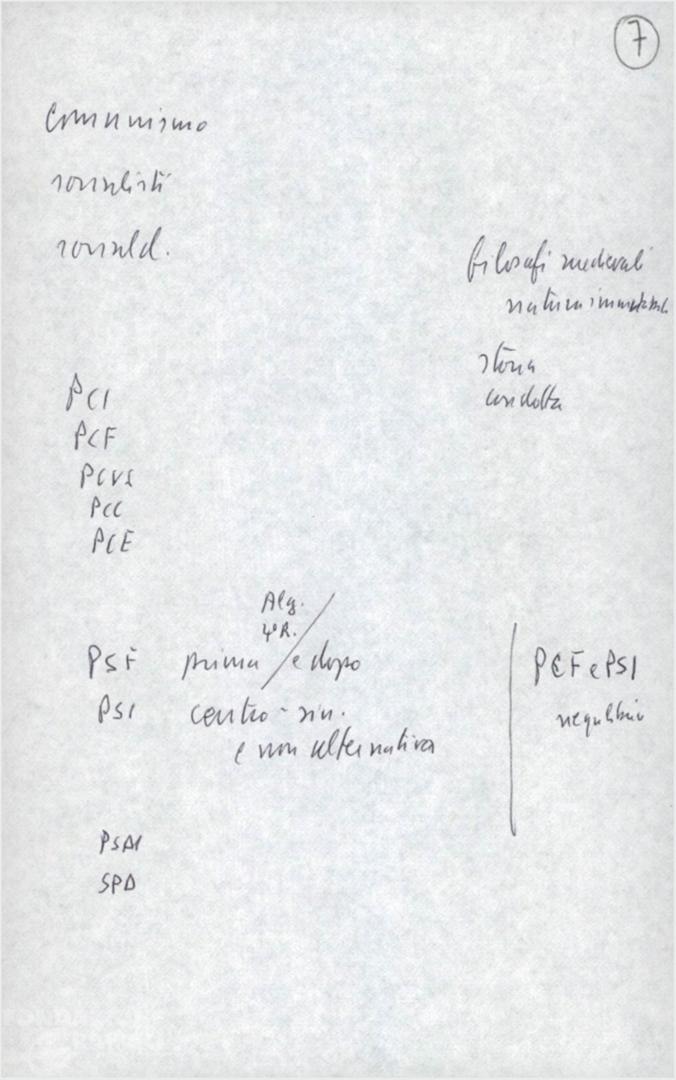 7
Comunismo
socialisti
sociald.
filosofi medievali
natura immutabile
storia
condotta
PCI
PCF
PCUS
PCC
PCE
Alg.
4ª R.
PSF prima / e dopo
PSI centro-sin.
e non alternativa
PCF e PSI
riequilibrio
PSDI
SPD